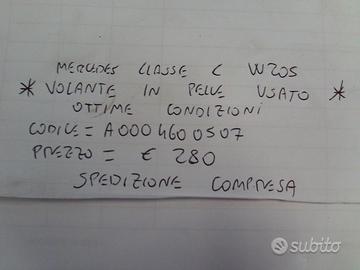 MERCEDES CLASSE C W205
* VOLANTE IN PELLE USATO *
OTTIME CONDIZIONI
CODICE = A000 460 0507
PREZZO = € 280
SPEDIZIONE COMPRESA
subito